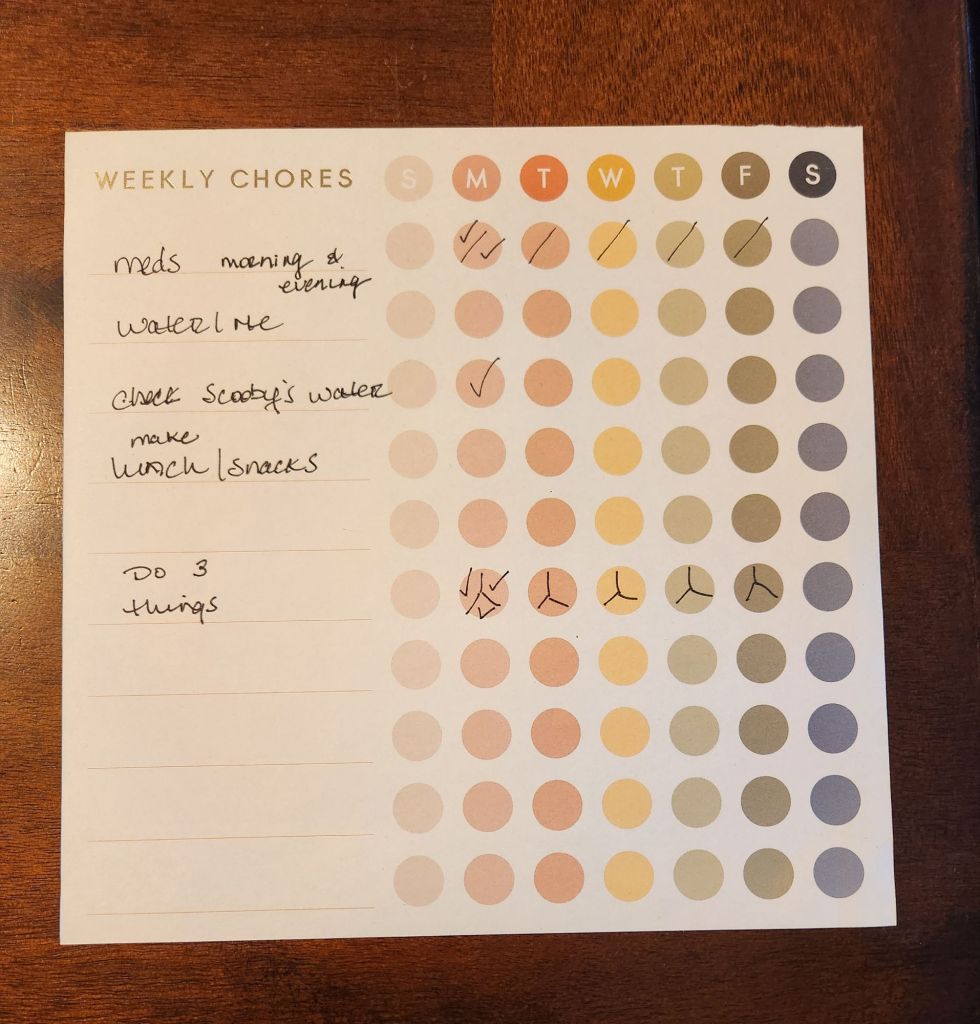 WEEKLY CHORES S M T W T F S
meds morning &
evening
water / me
check Scooby's water
make
lunch / snacks
Do 3
things